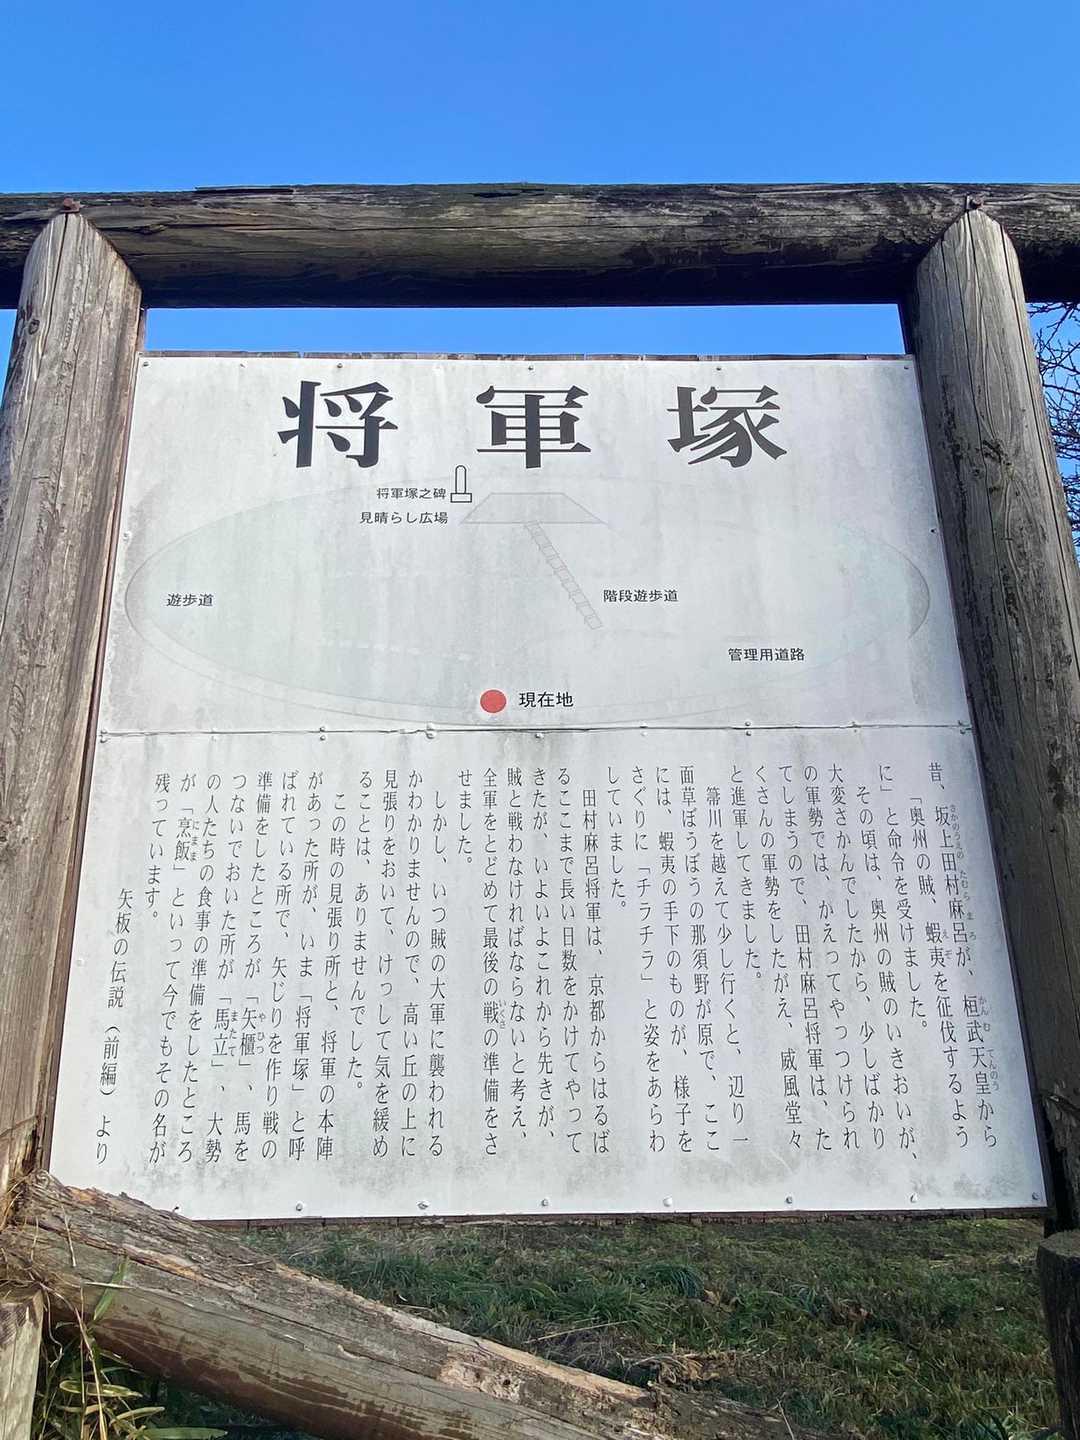 将軍塚
将軍塚之碑
見晴らし広場
遊歩道
階段遊歩道
管理用道路
現在地
昔、坂上田村麻呂が、桓武天皇から
「奥州の賊、蝦夷を征伐するよう
に」と命令を受けました。
その頃は、奥州の賊のいきおいが、
大変さかんでしたから、少しばかり
の軍勢では、かえってやっつけられ
てしまうので、田村麻呂将軍は、た
くさんの軍勢をしたがえ、威風堂々
と進軍してきました。
箒川を越えて少し行くと、辺り一
面草ぼうぼうの那須野が原で、ここ
には、蝦夷の手下のものが、様子を
さぐりに「チラチラ」と姿をあらわ
していました。
田村麻呂将軍は、京都からはるば
るここまで長い日数をかけてやって
きたが、いよいよこれから先きが、
賊と戦わなければならないと考え、
全軍をとどめて最後の戦の準備をさ
せました。
しかし、いつ賊の大軍に襲われる
かわかりませんので、高い丘の上に
見張りをおいて、けっして気を緩め
ることは、ありませんでした。
この時の見張り所と、将軍の本陣
があった所が、いま「将軍塚」と呼
ばれている所で、矢じりを作り戦の
準備をしたところが「矢櫃」、馬を
つないでおいた所が「馬立」、大勢
の人たちの食事の準備をしたところ
が「烹飯」といって今でもその名が
残っています。
矢板の伝説（前編）より